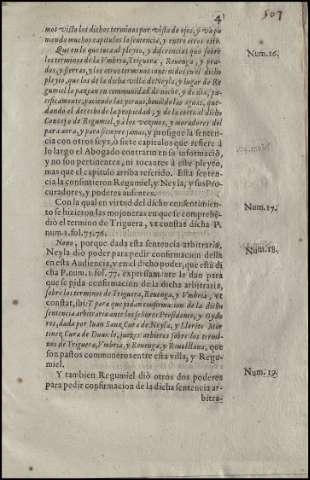 4
507
mos visto los dichos terminos por vista de ojos, y va po
niendo muchos capitulos la sentencia, y entre otros este.
Que en lo que toca al pleyto, y diferencias que sobre
los terminos de la Vmbria, Triguera, Reuenga, y pra-
dos, y sierras, y los otros terminos contenidos en el dicho
pleyto, que los de la dicha villa de Neyla, y lugar de Re
gumiel la pazcan en comunidad de noche, y de dia, pa-
cificamente, paciendo las yeruas, beuiendo las aguas, que-
dando el derecho de la propiedad, y de la corta al dicho
Concejo de Regumiel, y a los vezinos, y moradores del
para aora, y para siempre jamas, y prosigue la senten-
cia con otros seys, ò siete capitulos que refiere à
lo largo el Abogado contrario en su informaciō,
y no son pertinentes, ni tocantes à este pleyto,
mas que el capitulo arriba referido. Esta senten-
cia la consintieron Regumiel, y Neyla, y sus Pro-
curadores, y poderes auientes.
Num.16.
Con la qual en virtud del dicho consentimien-
to se hizieron las mojoneras en que se comprehē-
diò el termino de Triguera, vt constat dicha P.
num.1.fol.75.76.
Num.17.
Nono, porque dada esta sentencia arbitraria,
Neyla diò poder para pedir confirmacion della
en esta Audiencia, y en el dicho poder, que està di
cha P.num.1.fol.77. expressamente le dan para
que se pida confirmacion de la dicha arbitraria,
sobre los terminos de Triguera, Reuenga, y Vmbria, vt
constat, ibi: Y para que pidan confirmacion de la dicha
sentencia arbitraria ante los señores Presidente, y Oydo
res, dada por Iuan Sanz Cura de Neyla, y Llorite Mar
tinez Cura de Duruelo, juezes arbitros sobre los termi-
nos de Triguera, Vmbria, y Reuenga, y que
son pastos comuneros entre esta villa, y Regu-
miel.
Num.18.
Y tambien Regumiel diò otros dos poderes
para pedir confirmacion de la dicha sentencia ar-
bitra-
Num.19.